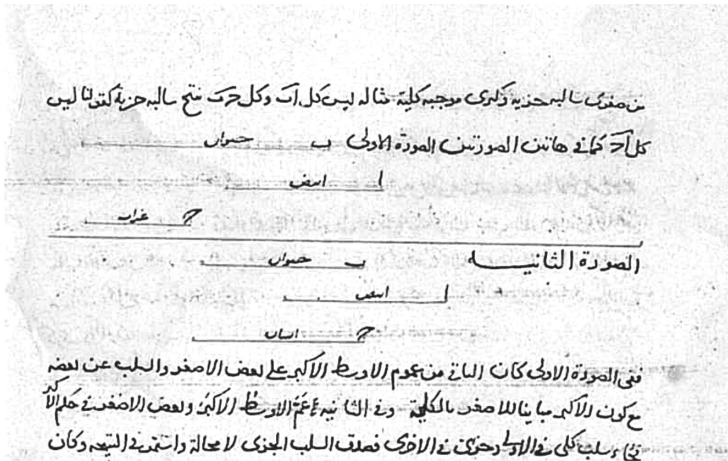 من صغرى سالبه جزيه وكبرى موجبه كلية مثاله ليس كل اب وكل حب نتج سالبه جزية كقولنا ليس
كل اح كما في هاتين الصورتين الصورة الاولى ب حيوان
ا ابيض
ح غراب
الصورة الثانيه ب حيوان
ا ابيض
ح انسان
ففى الصورة الاولى كان من عموم الاوسط الاكبر على بعض الاصغر والسلب عن بعضه
مع كون الاكبر مباينا للاصغر بالكلية وفى الثانيه الاوسط الاكبر وبعض الاصغر فى حكم الاكبر
سلب كلى فى الاولى وجزى فى الاخرى فصدق السلب الجزى لا محالة واستمر فى النتيجه وكان